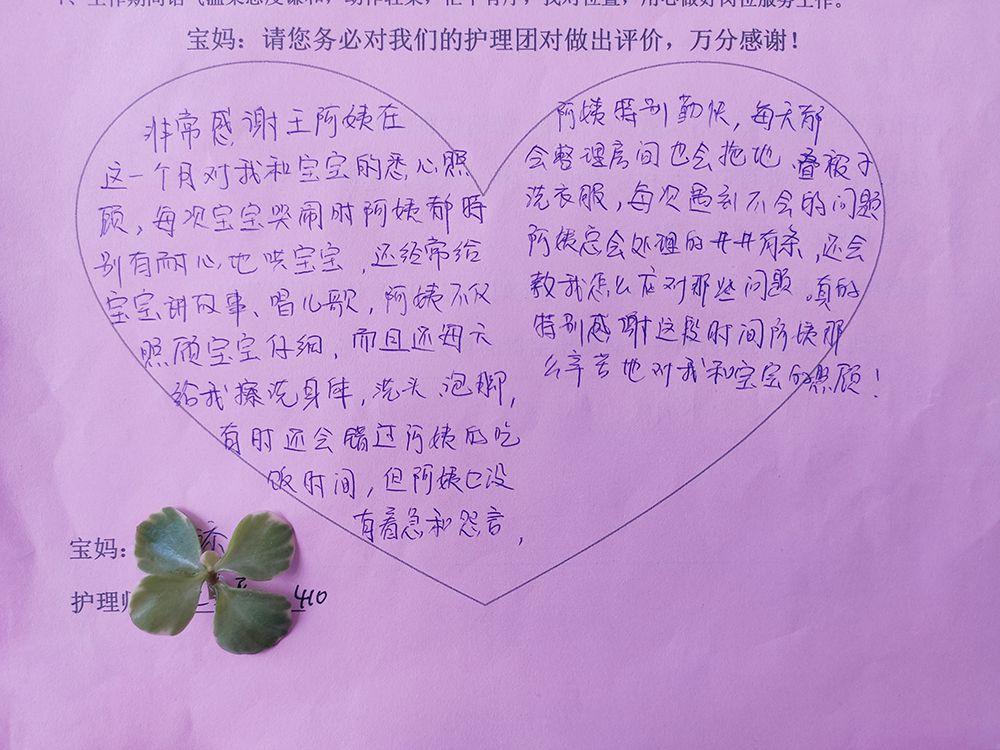 1、工作期间语气温柔态度谦和，动作轻柔，忙中有序，找对位置，用心做好岗位服务工作。
宝妈：请您务必对我们的护理团对做出评价，万分感谢！
非常感谢王阿姨在
这一个月对我和宝宝的悉心照
顾，每次宝宝哭闹时阿姨都特
别有耐心地哄宝宝，还经常给
宝宝讲故事、唱儿歌，阿姨不仅
照顾宝宝仔细，而且还每天
给我擦洗身体，洗头、泡脚，
有时还会错过阿姨的吃
饭时间，但阿姨也没
有着急和怨言，
阿姨特别勤快，每天都
会整理房间也会拖地、叠被子
洗衣服，每次遇到不会的问题
阿姨总会处理的井井有条，还会
教我怎么应对那些问题。真的
特别感谢这段时间阿姨那
么辛苦地对我和宝宝的照顾！
宝妈：
护理师 410